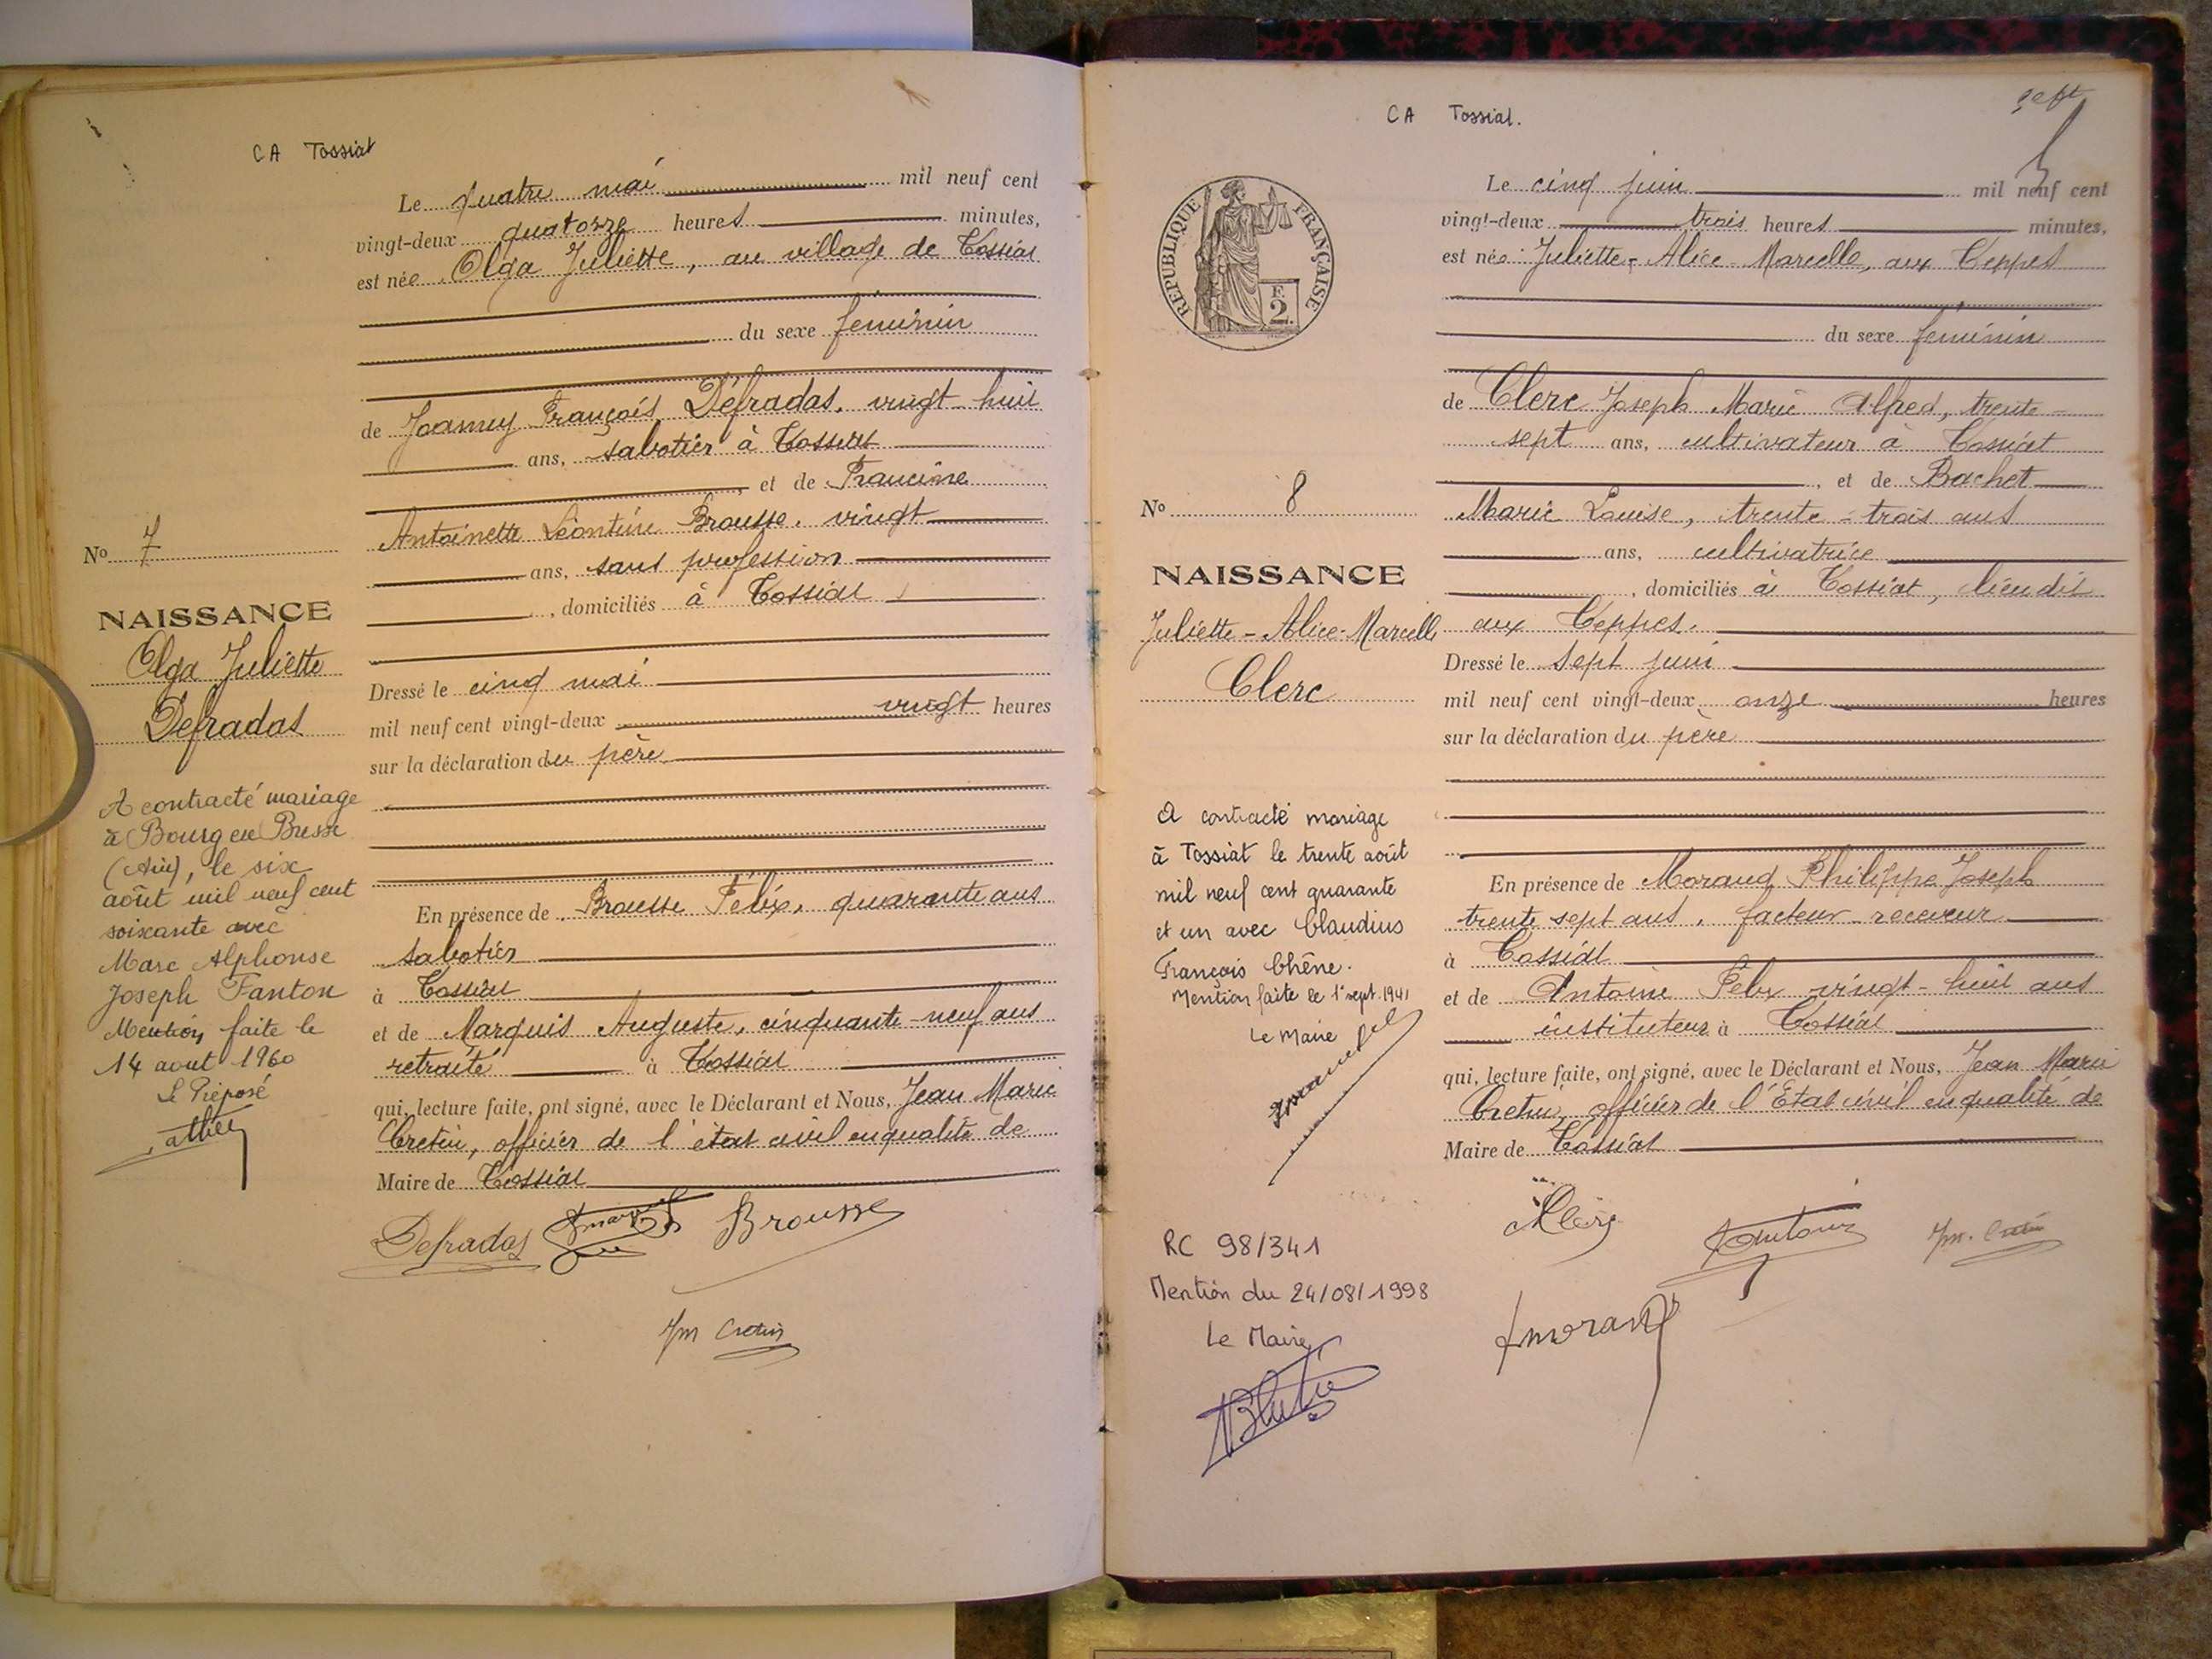 CA Tossiat
Le quatre mai mil neuf cent
vingt-deux quatorze heures minutes,
est née Olga Juliette, au village de Tossiat
du sexe féminin
de Joanny François Défradas, vingt-huit
ans, sabotier à Tossiat
et de Francine
Antoinette Léontine Brousse, vingt
ans, sans profession
, domiciliés à Tossiat
No 7
NAISSANCE
Olga Juliette
Defradas
Dressé le cinq mai
mil neuf cent vingt-deux vingt heures
sur la déclaration du père
A contracté mariage
à Bourg en Bresse
(Ain), le six
août mil neuf cent
soixante avec
Marc Alphonse
Joseph Fanton
Mention faite le
14 aout 1960
Le Préposé
En présence de Brousse Félix, quarante ans
sabotier
à Tossiat
et de Marquis Auguste, cinquante-neuf ans
retraité à Tossiat
qui, lecture faite, ont signé, avec le Déclarant et Nous, Jean Marie
Cretin, officier de l'état civil en qualité de
Maire de Tossiat
Defradas Brousse
Jm Cretin
CA Tossiat.
sept
REPUBLIQUE FRANÇAISE
F.
2.
Le cinq juin mil neuf cent
vingt-deux trois heures minutes,
est née Juliette-Alice-Marcelle, aux Teppes
du sexe féminin
de Clerc Joseph Marie Alfred, trente-
sept ans, cultivateur à Tossiat
, et de Bachet
Marie Louise, trente-trois ans
ans, cultivatrice
, domiciliés à Tossiat, lieu dit
aux Teppes.
No 8
NAISSANCE
Juliette-Alice-Marcelle
Clerc
Dressé le sept juin
mil neuf cent vingt-deux, onze heures
sur la déclaration du père
A contracté mariage
à Tossiat le trente août
mil neuf cent quarante
et un avec Claudius
François Chêne.
Mention faite le 1er sept. 1941
Le Maire
En présence de Morand Philippe Joseph
trente sept ans, facteur receveur
à Tossiat
et de Antoine Félix vingt-huit ans
instituteur à Tossiat
qui, lecture faite, ont signé, avec le Déclarant et Nous, Jean Marie
Cretin, officier de l'Etat civil en qualité de
Maire de Tossiat
RC 98/341
Mention du 24/08/1998
Le Maire
Antoine Jm. Cretin
Morand